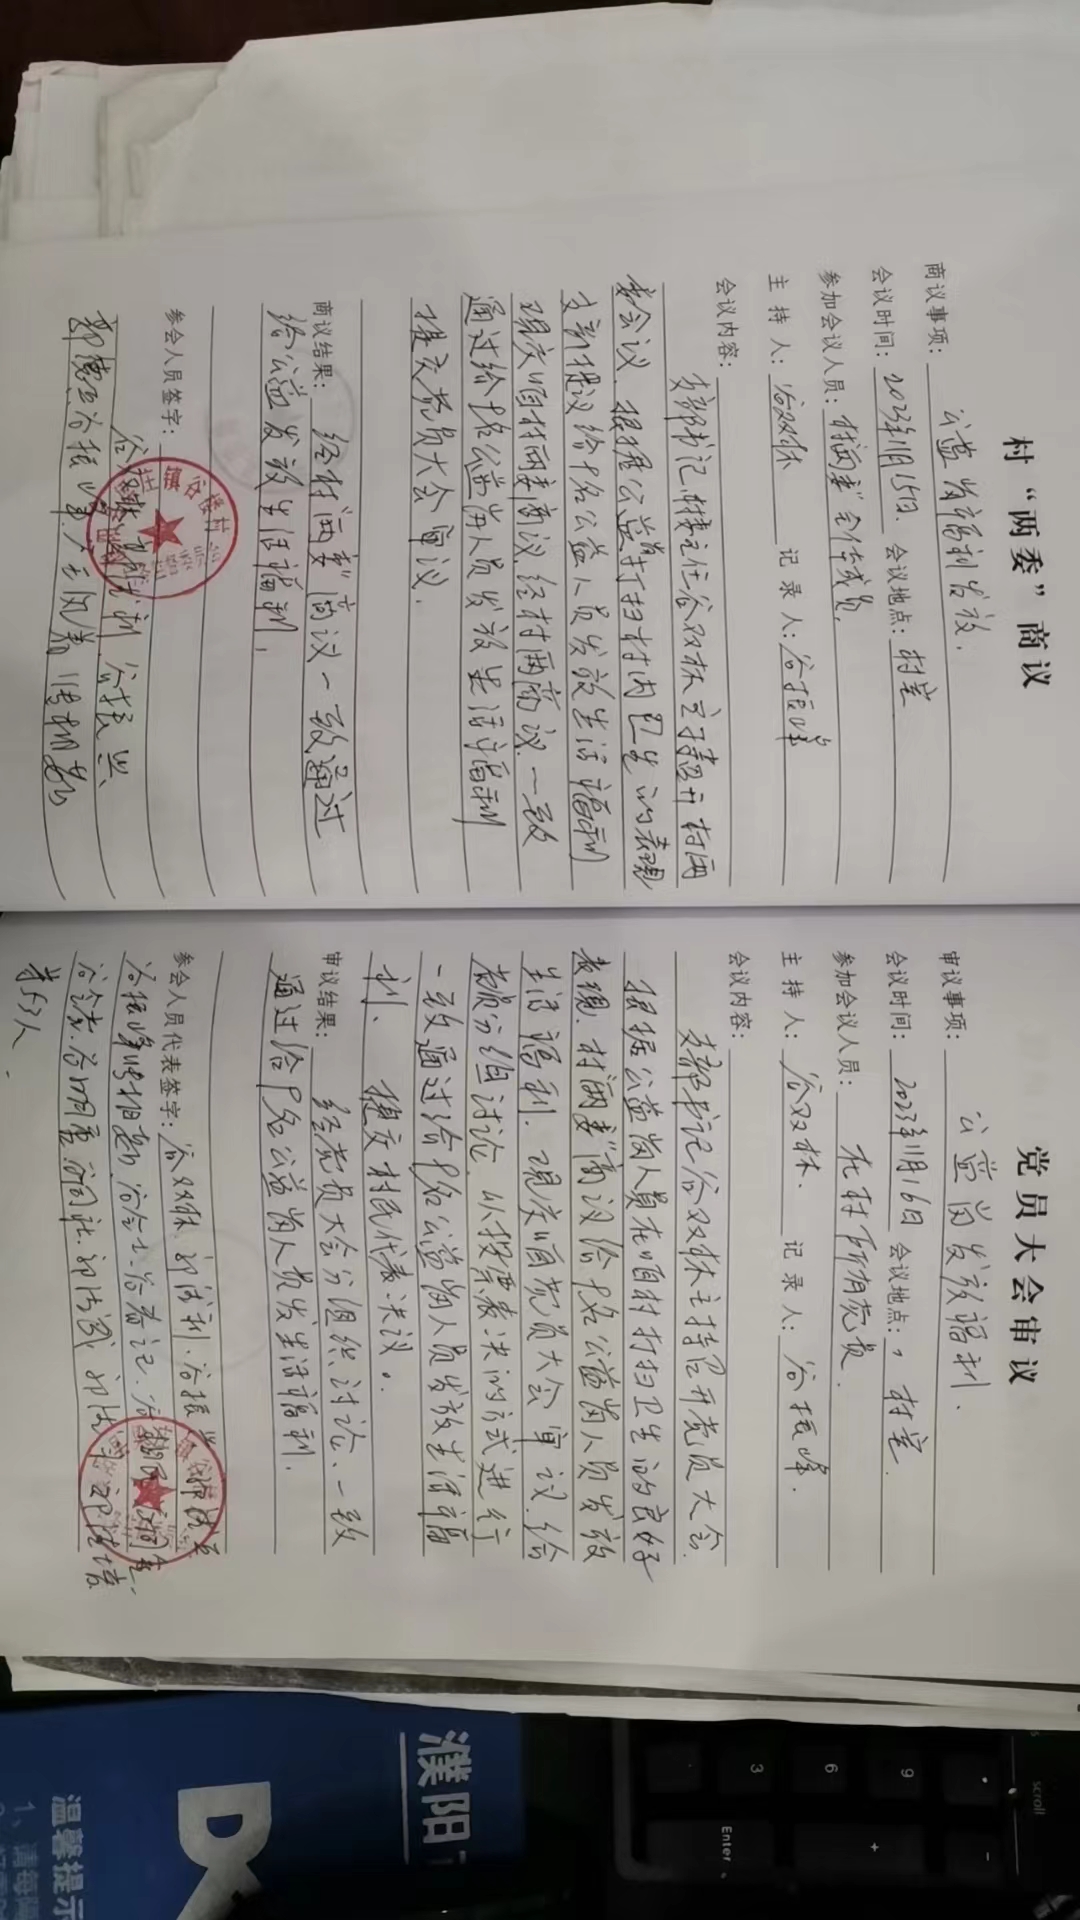 村“两委”商议
商议事项：公益岗福利发放.
会议时间：2023年11月15日. 会议地点：村室
参加会议人员：村两委全体成员.
主持人：谷双林 记录人：谷振峰
会议内容：
支部书记,村委主任谷双林主持召开村两
委会议.根据公益岗打扫村内卫生的表现
支部提议给P名公益人员发放生活福利
现交咱村两委商议.经村两商议.一致
通过给P名公益岗人员发放生活福利
提交党员大会审议.
商议结果：经村“两委”商议一致通过
给公益发放生活福利.
参会人员签字：
谷双林 利 谷振兴
谷振峰
镇谷楼村
党员大会审议
审议事项：公益岗发放福利.
会议时间：2023年11月16日 会议地点：村室.
参加会议人员：在村所有党员.
主持人：谷双林. 记录人：谷振峰.
会议内容：
支部书记谷双林主持召开党员大会.
根据公益岗人员在咱村打扫卫生的良好
表现.村“两委”商议给P名公益岗人员发放
生活福利.现交咱党员大会审议.给
党员分组讨论.以投票表决的方式进行
一致通过给P名公益岗人员发放生活福
利、提交村民代表决议.
审议结果：经党员大会分组织讨论.一致
通过给P名公益岗人员发生活福利.
参会人员代表签字：谷双林 利.谷振兴
谷振峰
等53人
濮阳
温馨提示
1、请每隔
scroll
9
6
3
+
-
Enter